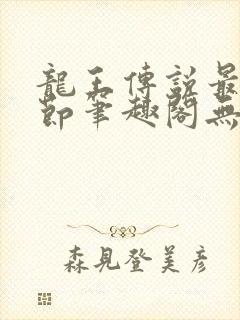 龍王傳説最
節筆趣閣無
森見登美彥